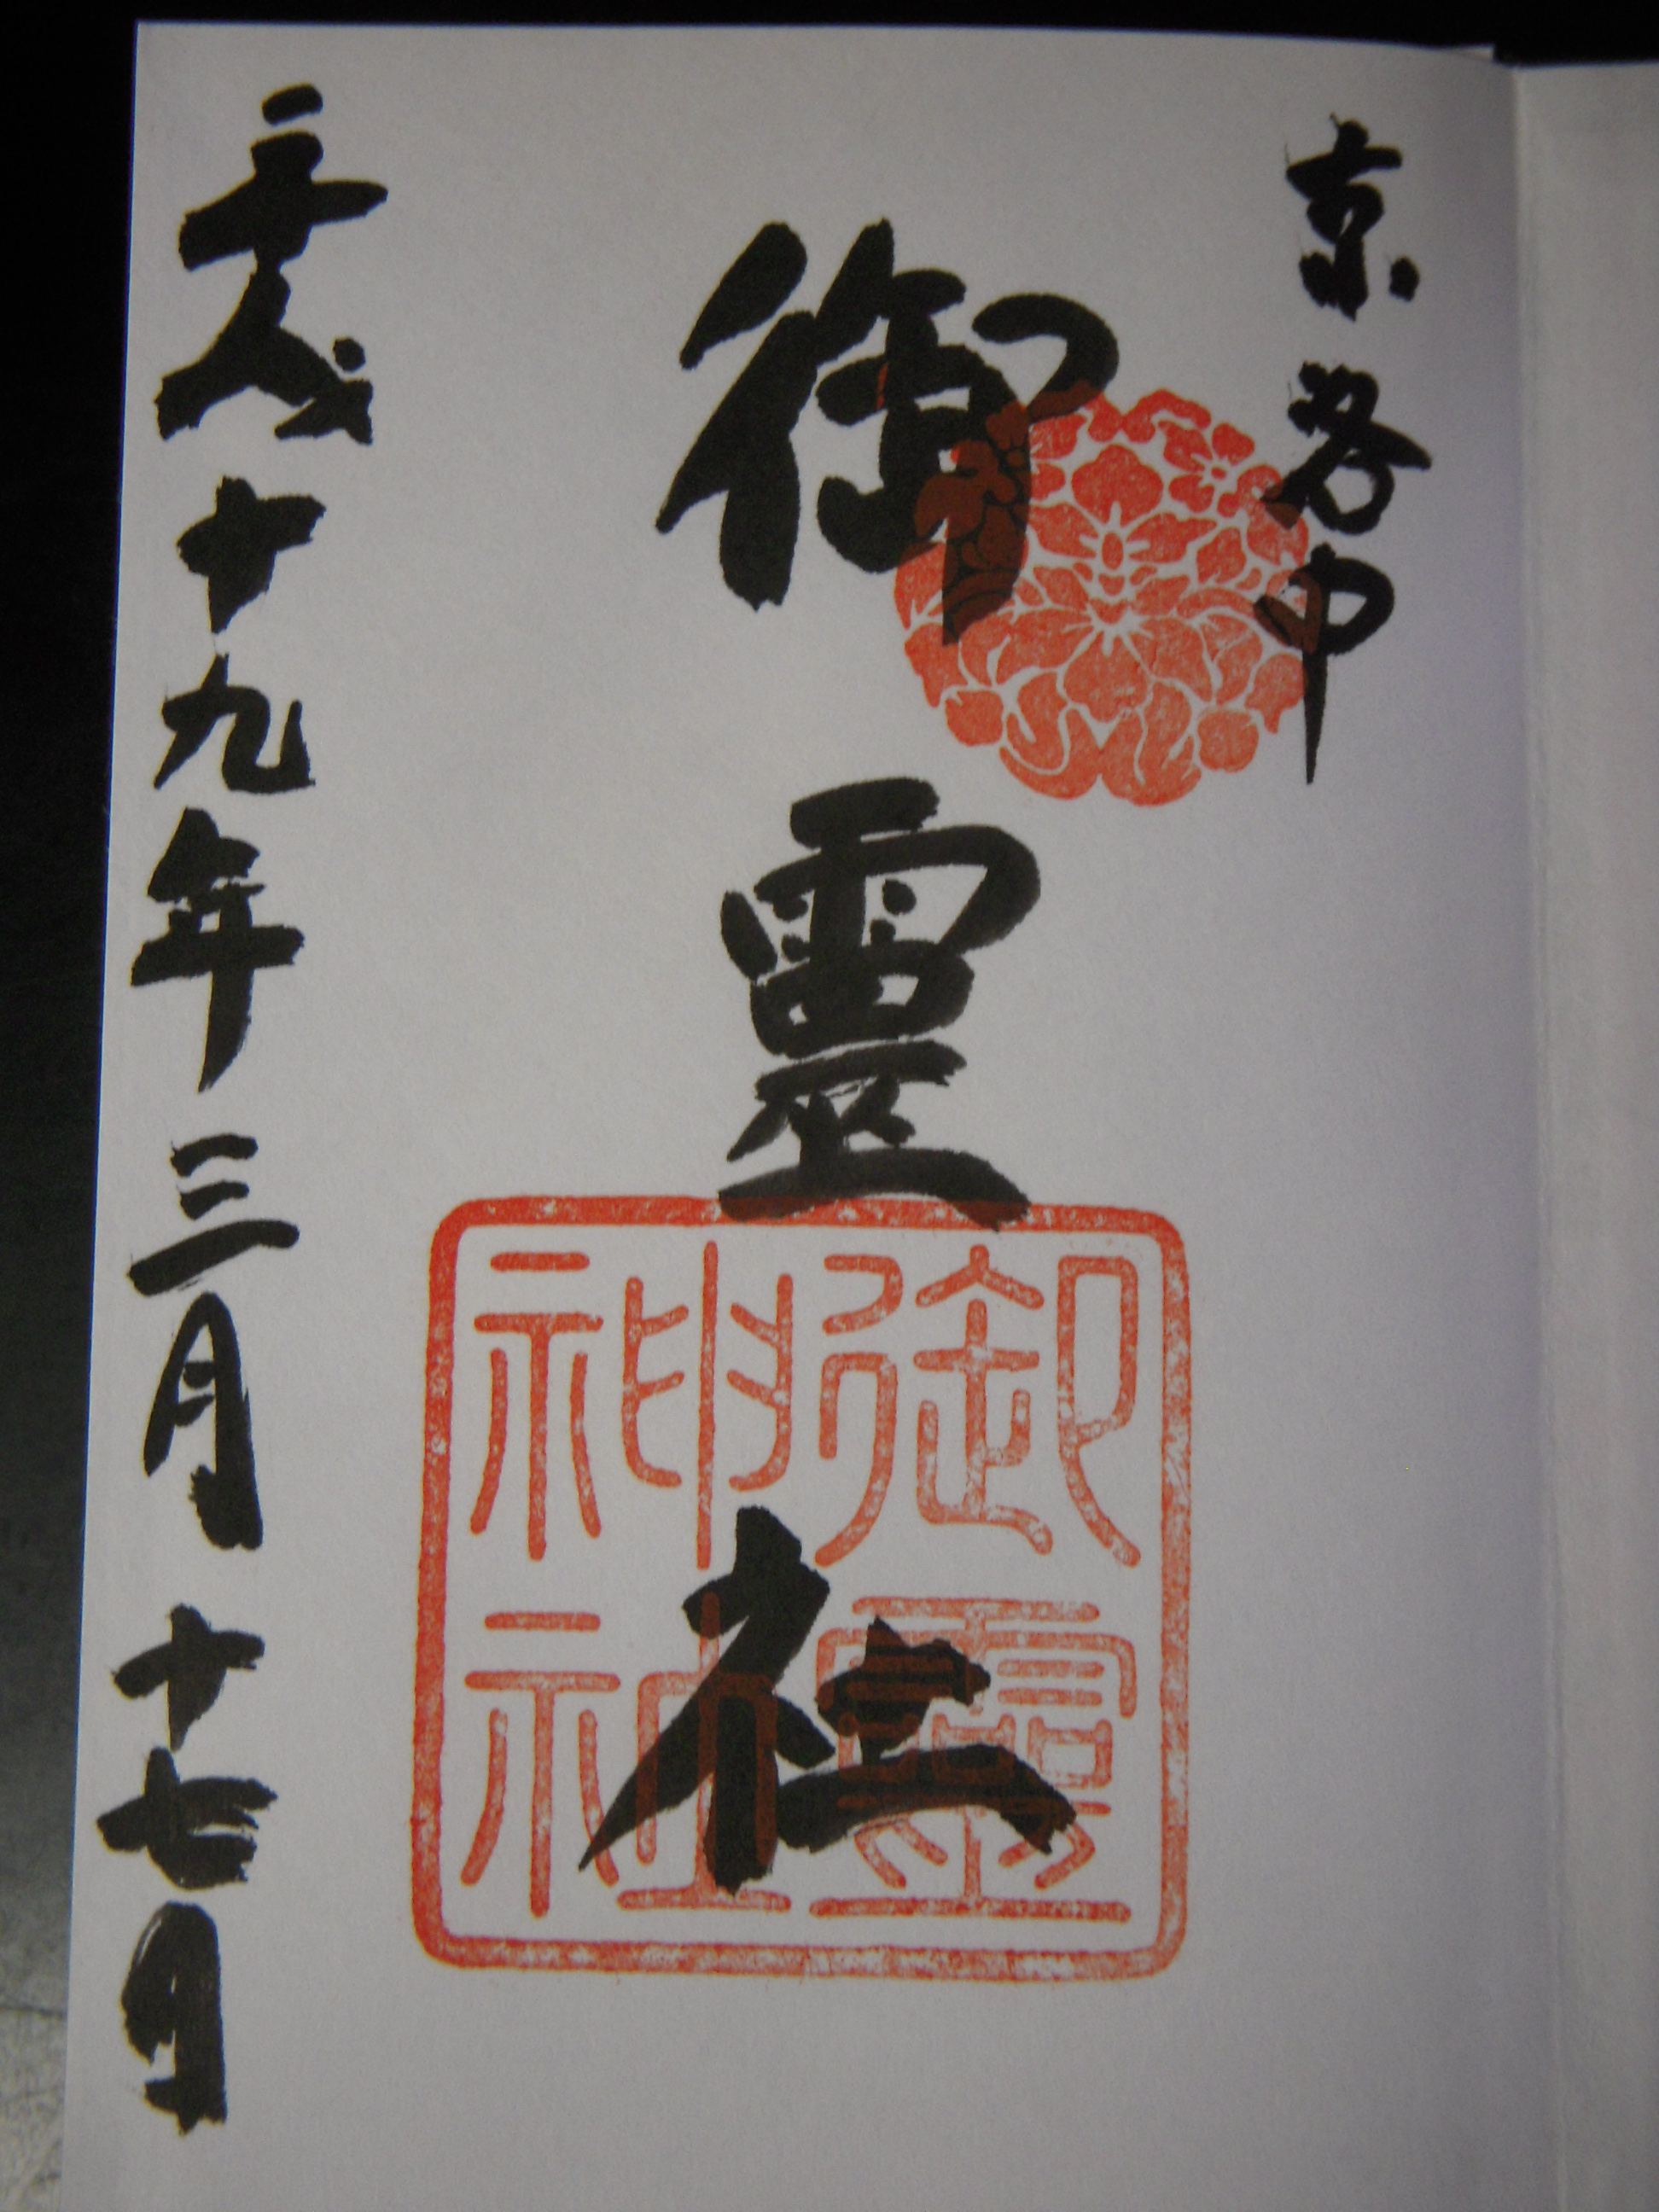 京洛中
御靈社
御靈神社
平成十九年三月十七日